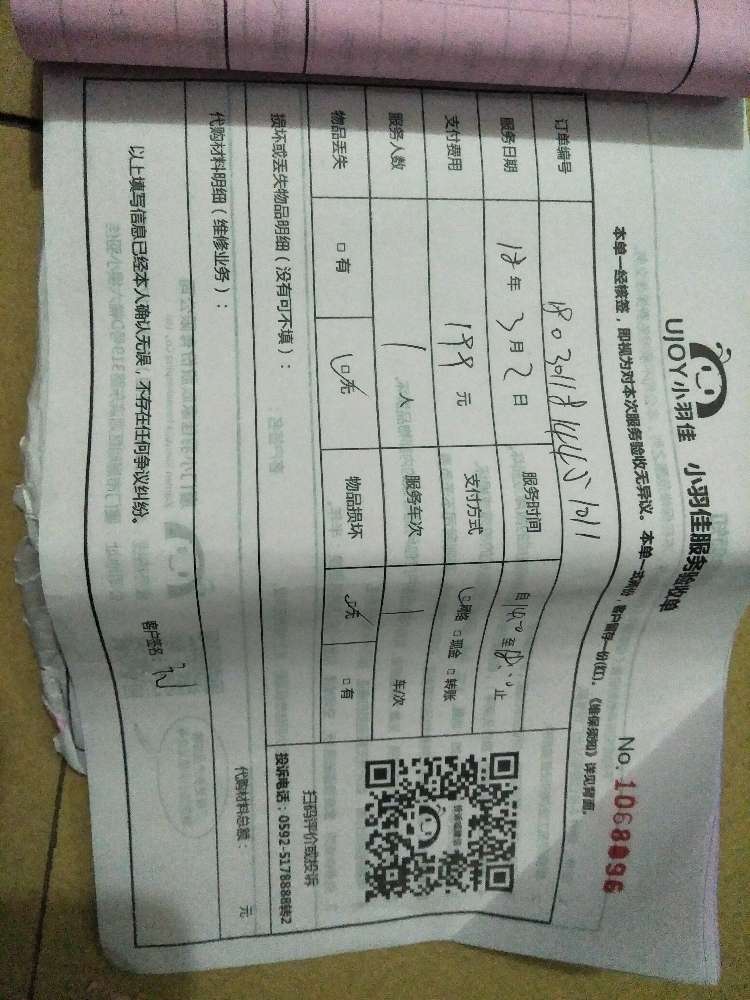 UJOY小羽佳 小羽佳服务验收单
No: 1068096
本单一经核签，即视为对本次服务验收无异议。本单一式两份，客户留存一份(红)。《维保须知》详见背面。
订单编号
服务日期 18年3月2日 服务时间 自 至 止
支付费用 199元 支付方式 网络 □现金 □转账
服务人数 1人 服务车次 1 车/次
物品丢失 □有 □无 物品损坏 □无 □有
损坏或丢失物品明细（没有可不填）：
扫码评价或投诉
投诉电话：0592-5178888转2
代购材料明细（维修业务）：
代购材料总额： 元
以上填写信息已经本人确认无误，不存在任何争议纠纷。
客户签名：